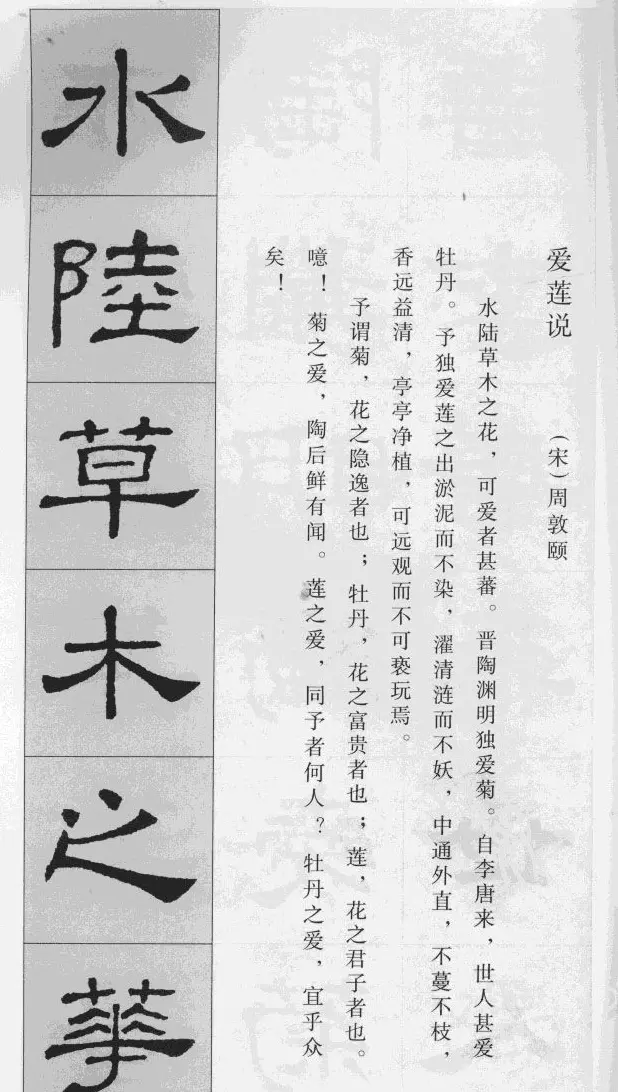 爱莲说
(宋)周敦颐
水陆草木之花，可爱者甚蕃。晋陶渊明独爱菊。自李唐来，世人甚爱
牡丹。予独爱莲之出淤泥而不染，濯清涟而不妖，中通外直，不蔓不枝，
香远益清，亭亭净植，可远观而不可亵玩焉。
予谓菊，花之隐逸者也；牡丹，花之富贵者也；莲，花之君子者也。
噫！菊之爱，陶后鲜有闻。莲之爱，同予者何人？牡丹之爱，宜乎众
矣！
水陸草木之華